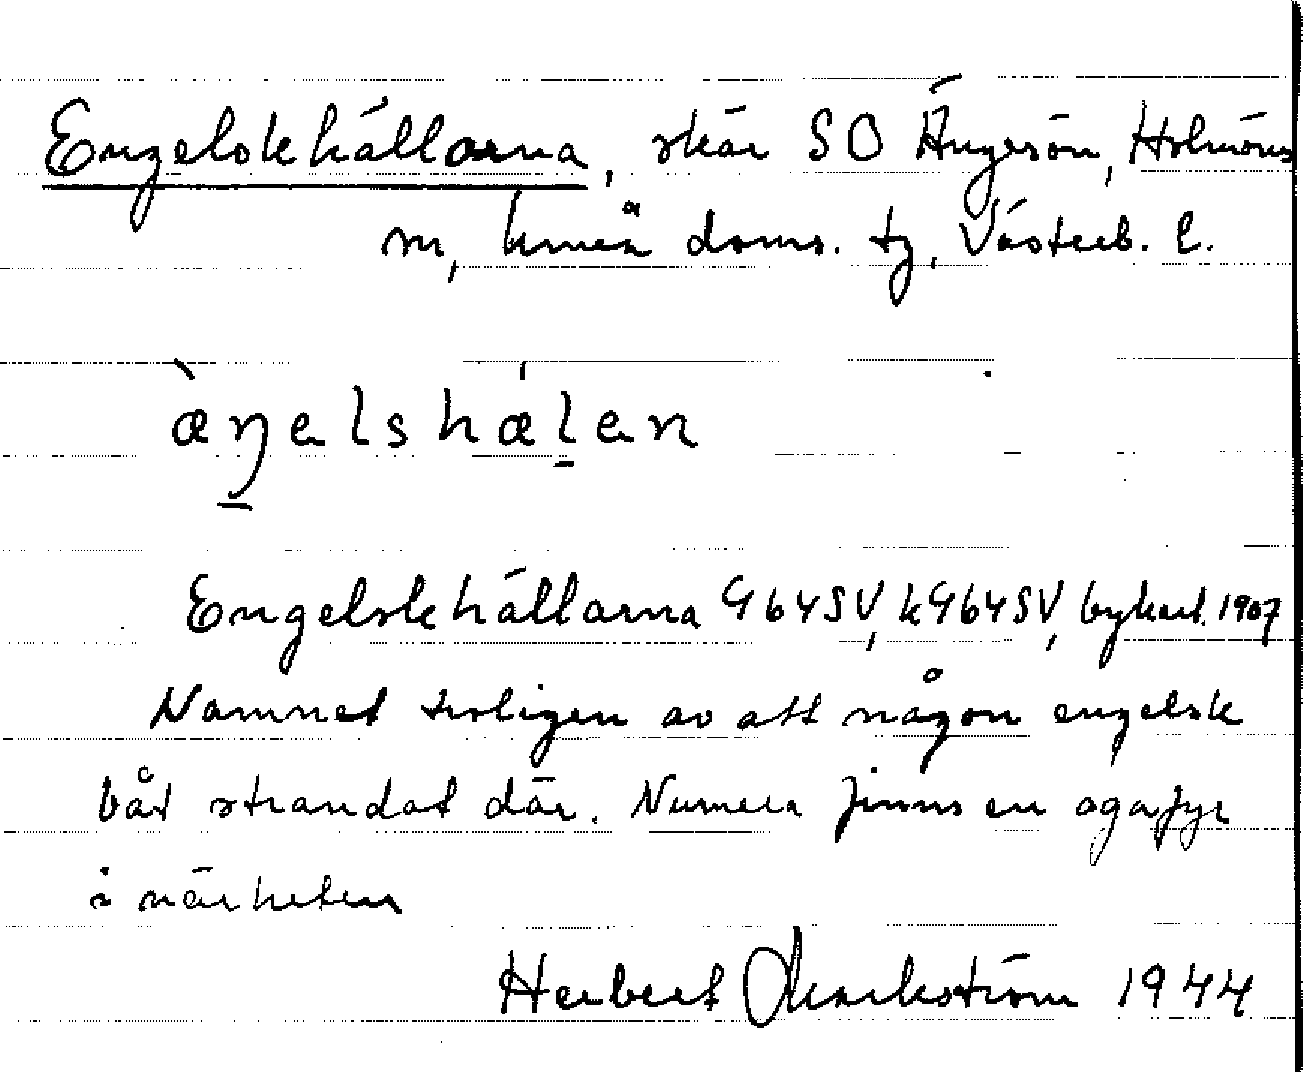 Engelskhällarna, skär SO Ängesön, Holmöns
sn, Umeå doms. tg, Västerb. l.
æ̀ŋelshǽlen
Engelskhällarna G64SV, kG64SV, bykart. 1907
Namnet troligen av att någon engelsk
båt strandat där. Numera finns en agafyr
i närheten
Herbert Markström 1944